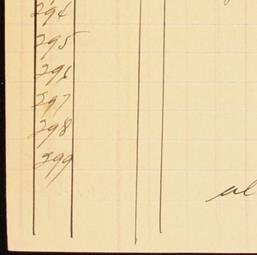 294
295
296
297
298
299
al